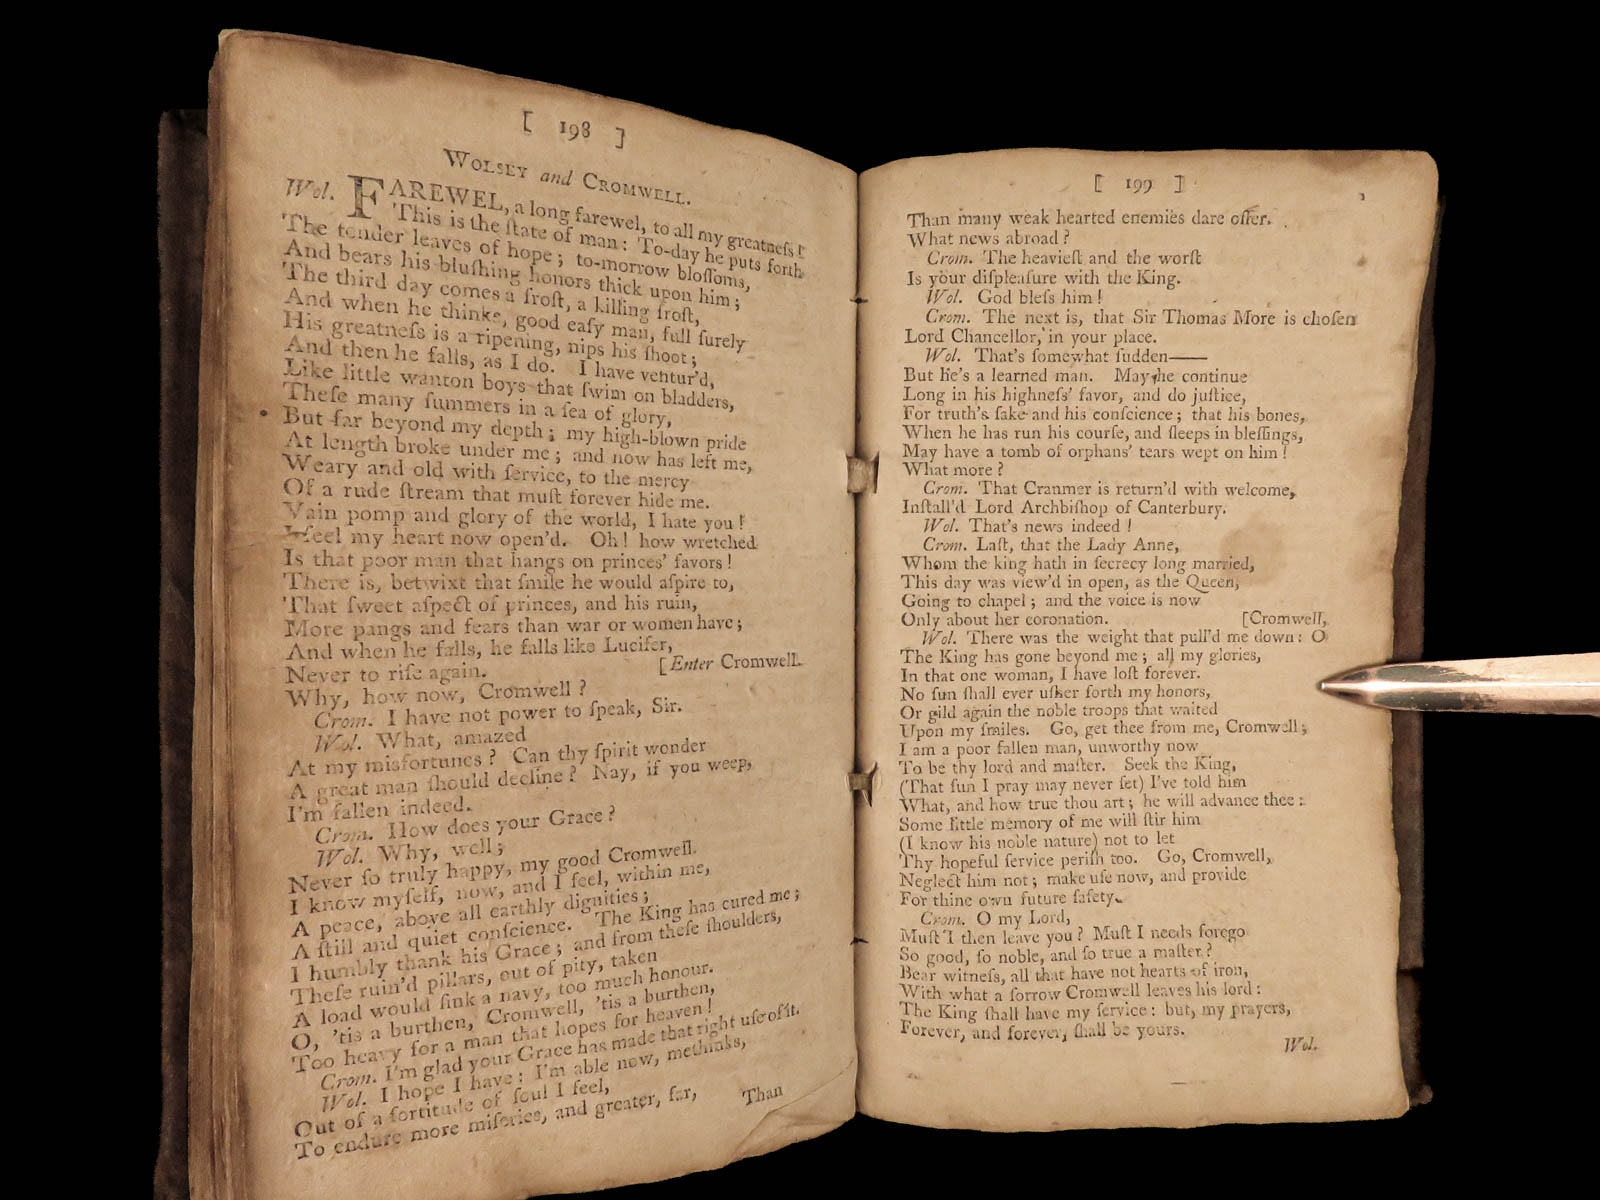 [ 198 ]
WOLSEY and CROMWELL.
Wol. FAREWEL, a long farewel, to all my greatneſs!
This is the ſtate of man: To-day he puts forth
The tender leaves of hope; to-morrow bloſſoms,
And bears his bluſhing honors thick upon him;
The third day comes a froſt, a killing froſt,
And when he thinks, good eaſy man, full ſurely
His greatneſs is a ripening, nips his ſhoot;
And then he falls, as I do. I have ventur'd,
Like little wanton boys that ſwim on bladders,
Theſe many ſummers in a ſea of glory,
But far beyond my depth; my high-blown pride
At length broke under me; and now has left me,
Weary and old with ſervice, to the mercy
Of a rude ſtream that muſt forever hide me.
Vain pomp and glory of the world, I hate you!
I feel my heart now open'd. Oh! how wretched
Is that poor man that hangs on princes' favors!
There is, betwixt that ſmile he would aſpire to,
That ſweet aſpect of princes, and his ruin,
More pangs and fears than war or women have;
And when he falls, he falls like Lucifer,
Never to riſe again. [Enter Cromwell.
Why, how now, Cromwell?
Crom. I have not power to ſpeak, Sir.
Wol. What, amazed
At my misfortunes? Can thy ſpirit wonder
A great man ſhould decline? Nay, if you weep,
I'm fallen indeed.
Crom. How does your Grace?
Wol. Why, well;
Never ſo truly happy, my good Cromwell.
I know myſelf, now, and I feel, within me,
A peace, above all earthly dignities;
A ſtill and quiet conſcience. The King has cured me;
I humbly thank his Grace; and from theſe ſhoulders,
Theſe ruin'd pillars, out of pity, taken
A load would ſink a navy, too much honour.
O, 'tis a burthen, Cromwell, 'tis a burthen,
Too heavy for a man that hopes for heaven!
Crom. I'm glad your Grace has made that right uſe of it.
Wol. I hope I have: I'm able now, methinks,
Out of a fortitude of ſoul I feel,
To endure more miſeries, and greater, far,
Than
[ 199 ]
Than many weak hearted enemies dare offer.
What news abroad?
Crom. The heavieſt and the worſt
Is your diſpleaſure with the King.
Wol. God bleſs him!
Crom. The next is, that Sir Thomas More is choſen
Lord Chancellor, in your place.
Wol. That's ſomewhat ſudden——
But he's a learned man. May he continue
Long in his highneſs' favor, and do juſtice,
For truth's ſake and his conſcience; that his bones,
When he has run his courſe, and ſleeps in bleſſings,
May have a tomb of orphans' tears wept on him!
What more?
Crom. That Cranmer is return'd with welcome,
Inſtall'd Lord Archbiſhop of Canterbury.
Wol. That's news indeed!
Crom. Laſt, that the Lady Anne,
Whom the king hath in ſecrecy long married,
This day was view'd in open, as the Queen,
Going to chapel; and the voice is now
Only about her coronation. [Cromwell,
Wol. There was the weight that pull'd me down: O
The King has gone beyond me; all my glories,
In that one woman, I have loſt forever.
No ſun ſhall ever uſher forth my honors,
Or gild again the noble troops that waited
Upon my ſmiles. Go, get thee from me, Cromwell;
I am a poor fallen man, unworthy now
To be thy lord and maſter. Seek the King,
(That ſun I pray may never ſet) I've told him
What, and how true thou art; he will advance thee:
Some little memory of me will ſtir him
(I know his noble nature) not to let
Thy hopeful ſervice periſh too. Go, Cromwell,
Neglect him not; make uſe now, and provide
For thine own future ſafety.
Crom. O my Lord,
Muſt I then leave you? Muſt I needs forego
So good, ſo noble, and ſo true a maſter?
Bear witneſs, all that have not hearts of iron,
With what a ſorrow Cromwell leaves his lord:
The King ſhall have my ſervice: but, my prayers,
Forever, and forever, ſhall be yours.
Wol.